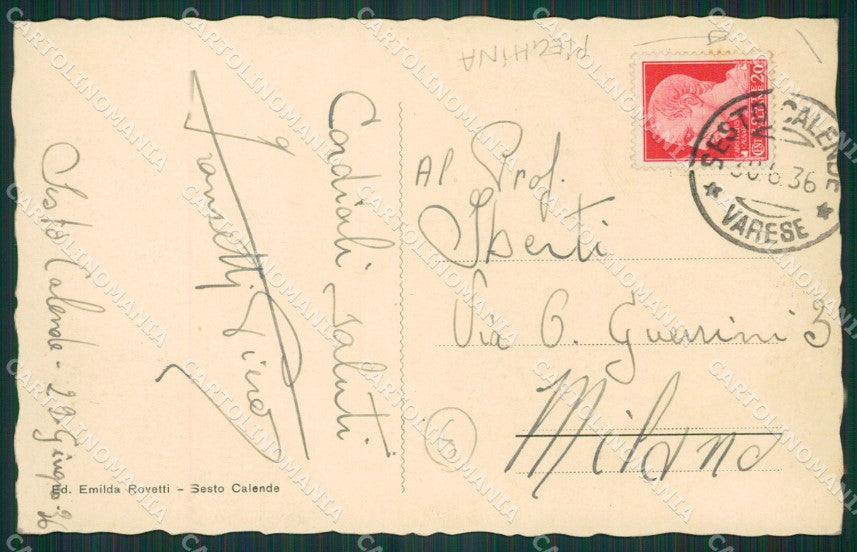 PIEGHINA
CENT. 20
SESTO CALENDE
30.6.36
VARESE
Al Prof.
Sberti
Via G. Guerrini 3
Milano
Cordiali saluti
Franzetti Piero
Sesto Calende - 29 Giugno 36
Ed. Emilda Rovetti - Sesto Calende
CARTOLINOMANIA